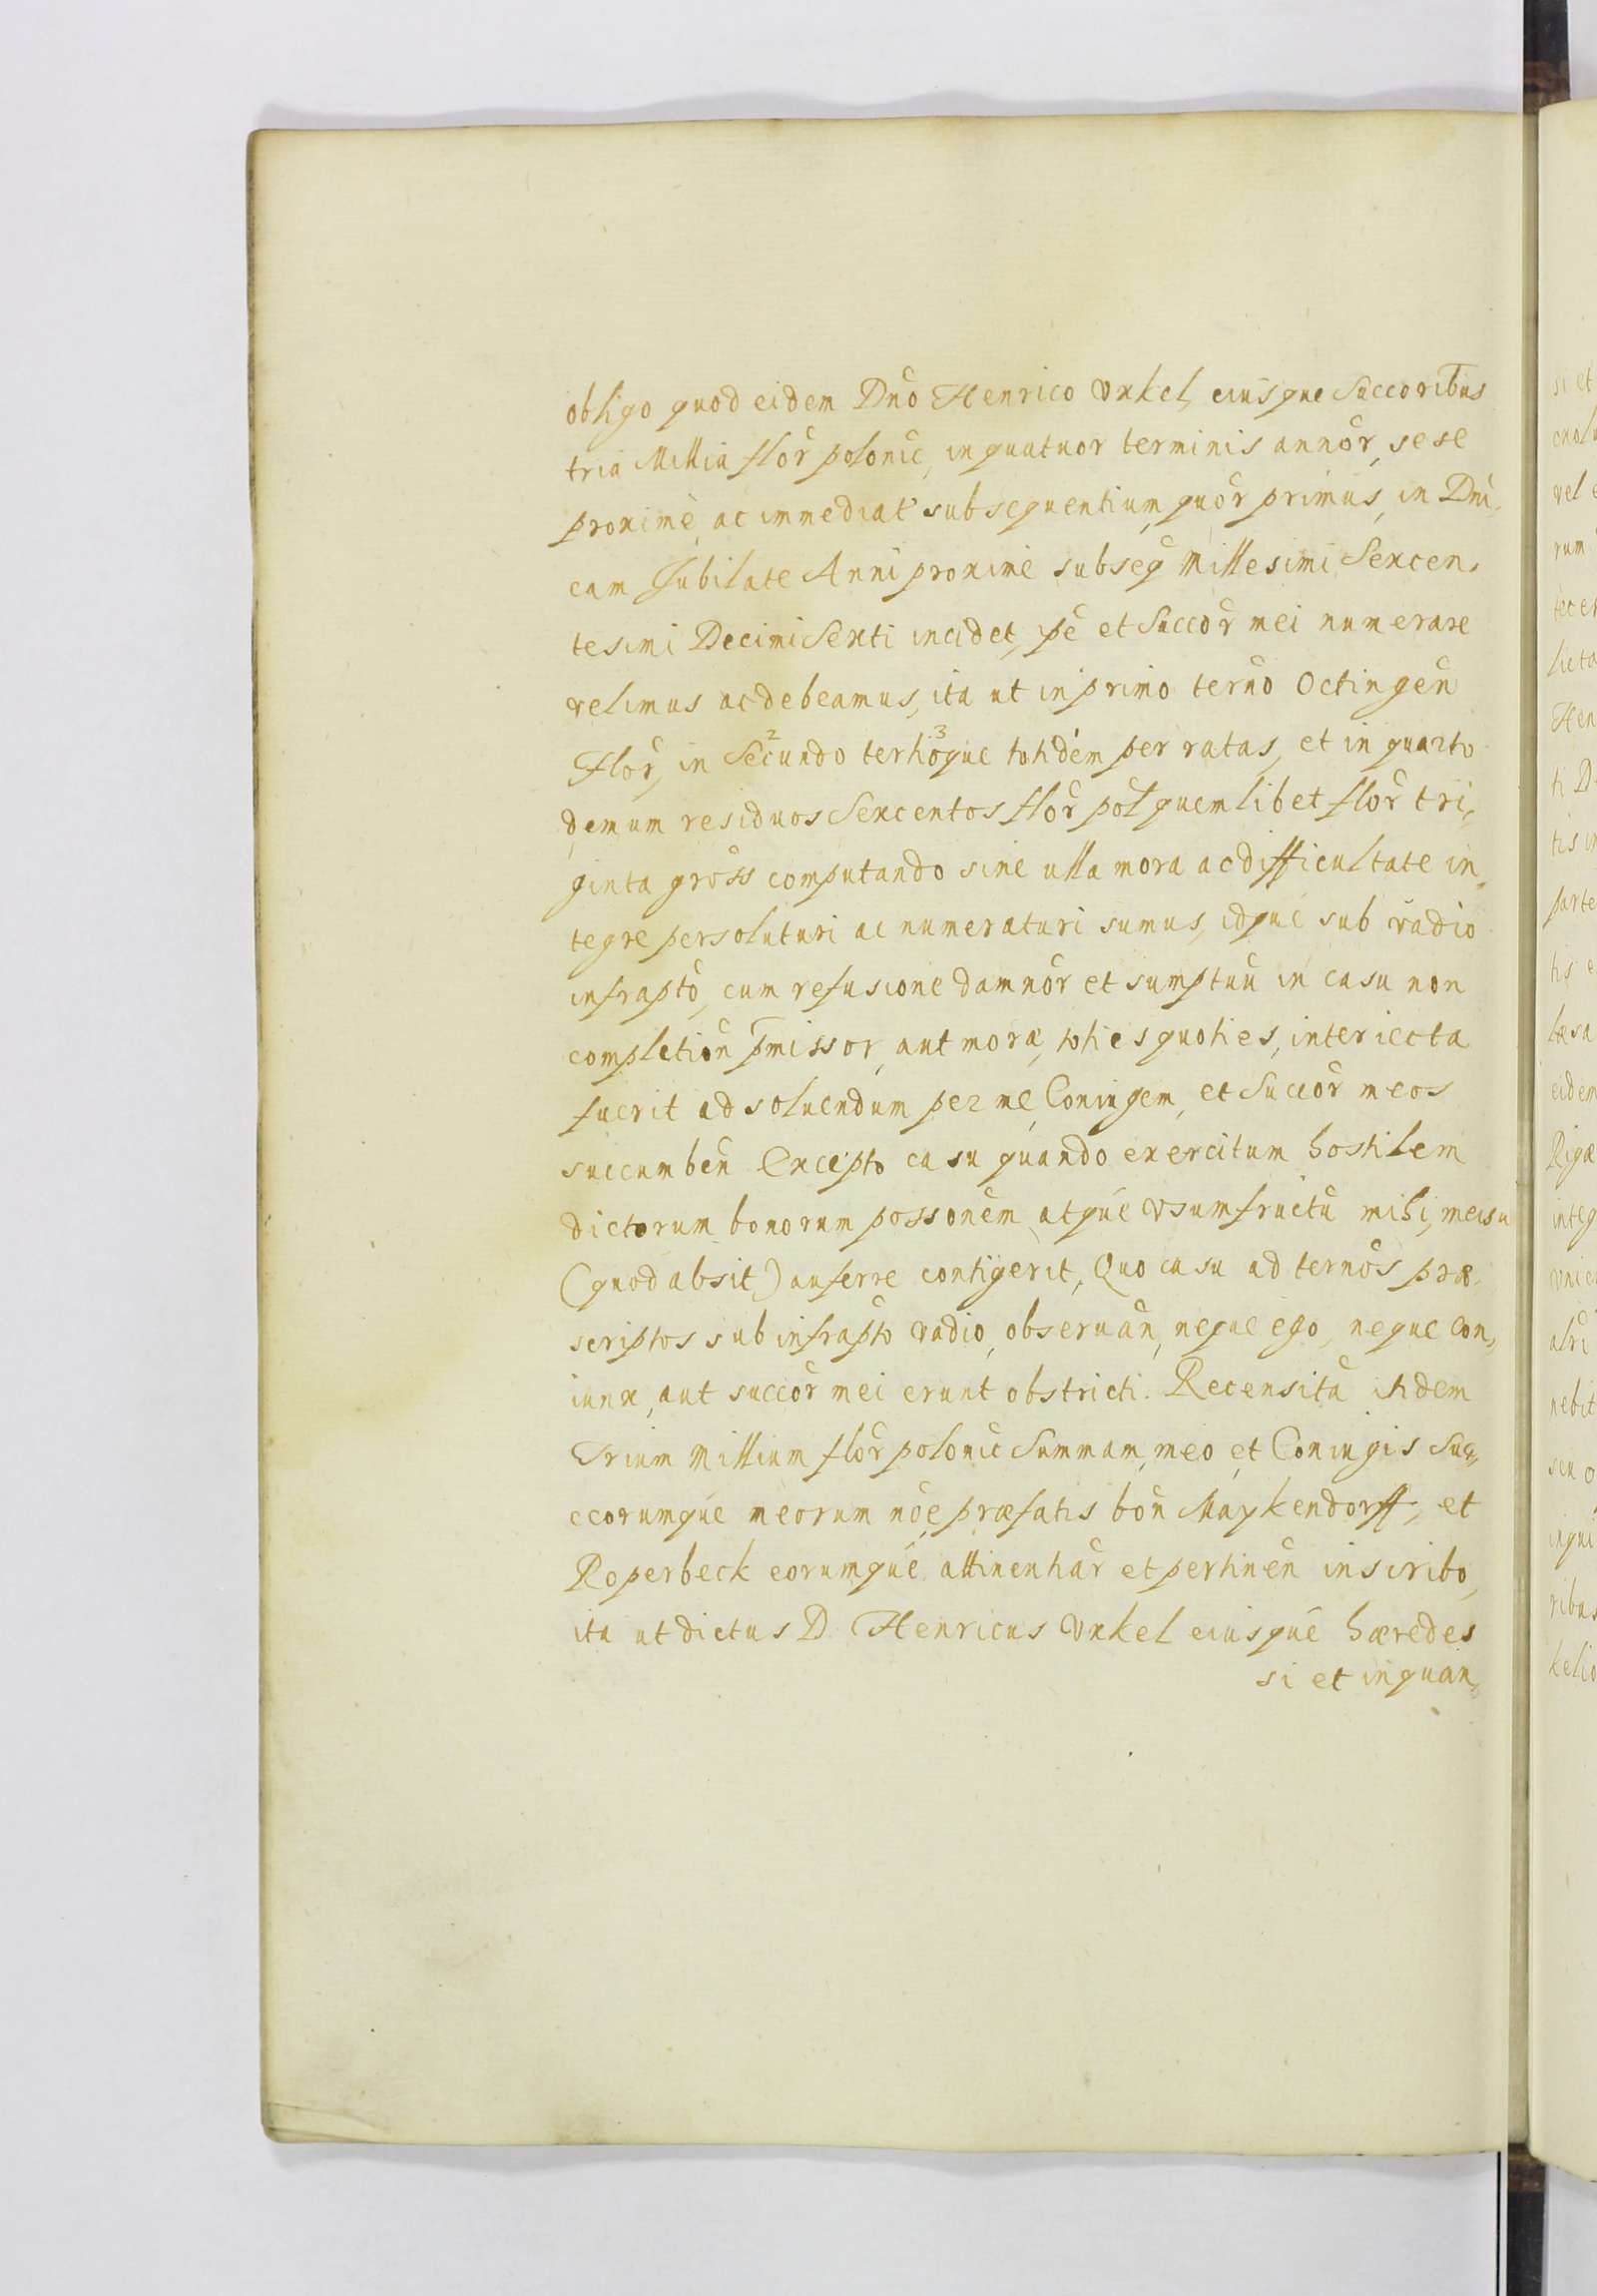 obligo quod eidem Dno Henrico Vnkel, eiusque Succoribus
tria Millia flor polonic, in quatuor terminis annor, sese
proximè, ac immediat subsequentium, quor primus, in Dni,
cam Jubilate Anni proximè subseq Millesimi Sexcen,
tesimi Decimi Sexti incidet, per et Succor mei numerare
velimus ac debeamus, ita ut in primo termo Octingen
Flor, in Secundo 2 tertioque 3 totidem per ratas, et in quarto
demum residuos Sexcentos flor pol quemlibet flor tri,
ginta gross computando sine ulla mora ac difficultate in,
tegre persoluturi ac numeraturi sumus, idque sub vadio
infrapto, cum refusione damnor et sumptuu in casu non
completion pmissor, aut moræ, toties quoties, interiecta
fuerit ad soluendum per me, Coniugem, et Succor meos
succumben Excepto casu quando exercitum hostilem
dictorum bonorum possonem atque vsumfructu mihi, meisu
(quod absit) auferre contigerit, Quo casu ad ternos præ,
scriptos sub infrapto vadio, obseruan, neque ego, neque con,
iunx, aut succor mei erunt obstricti. Recensita itidem
Trium Millium flor polonic Summam, meo et Coniugis Suc,
ccorumque meorum noe, præfatis bon Maykendorff, et
Roperbeck eorumque attinentiar et pertinen inscribo,
ita ut dictus D. Henricus Vnkel eiusque hæredes
si et inquan,